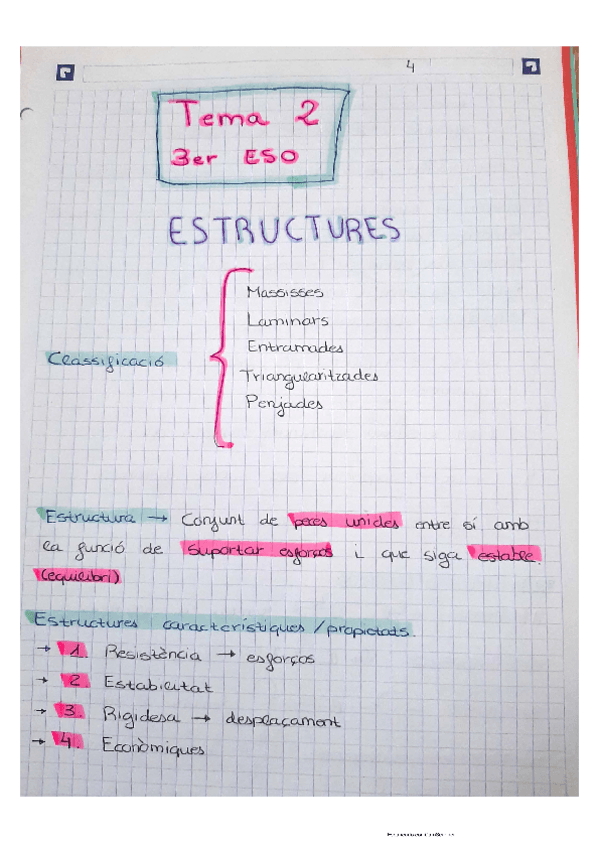 4
Tema 2
3er ESO
ESTRUCTURES
Massisses
Laminars
Entramades
Classificació
Triangularitzades
Penjades
Estructura → Conjunt de peces unides entre sí amb
la funció de suportar esforços i que siga estable.
(equilibri)
Estructures característiques / propietats.
→ 1. Resistència → esforços
→ 2 Estabilitat
→ 3. Rigidesa → desplaçament
→ 4. Econòmiques